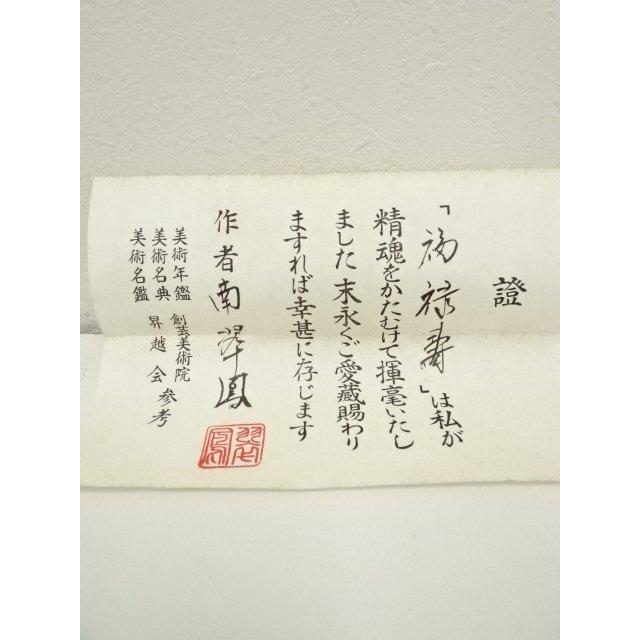 證
「福禄寿」は私が
精魂をかたむけて揮毫いたし
ました 末永くご愛蔵賜わり
ますれば幸甚に存じます
作者 南翠鳳
美術年鑑 創芸美術院
美術名典
美術名鑑 昇越会 参考
翠鳳